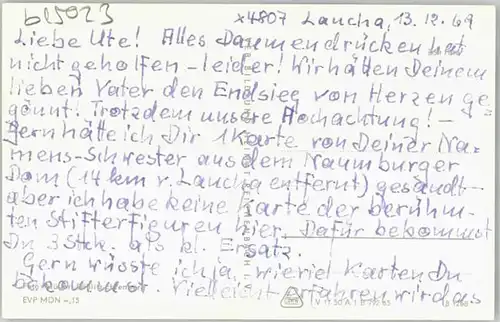 b15023
x4807 Laucha, 13.12.69
Liebe Ute! Alles Daumendrücken hat
nicht geholfen - leider! Wir hätten Deinem
lieben Vater den Endsieg von Herzen ge=
gönnt! Trotzdem unsere Hochachtung! -
Gern hätte ich Dir 1 Karte von Deiner Na=
mens-Schwester aus dem Naumburger
Dom (14 km v. Laucha entfernt) gesandt -
aber ich habe keine Karte der berühm=
ten Stifterfiguren hier. Dafür bekommst
Du 3 Stck. als kl. Ersatz.
Gern wüsste ich ja, wieviel Karten Du
bekommst. Vielleicht erfahren wir das
EVP MDN -,15